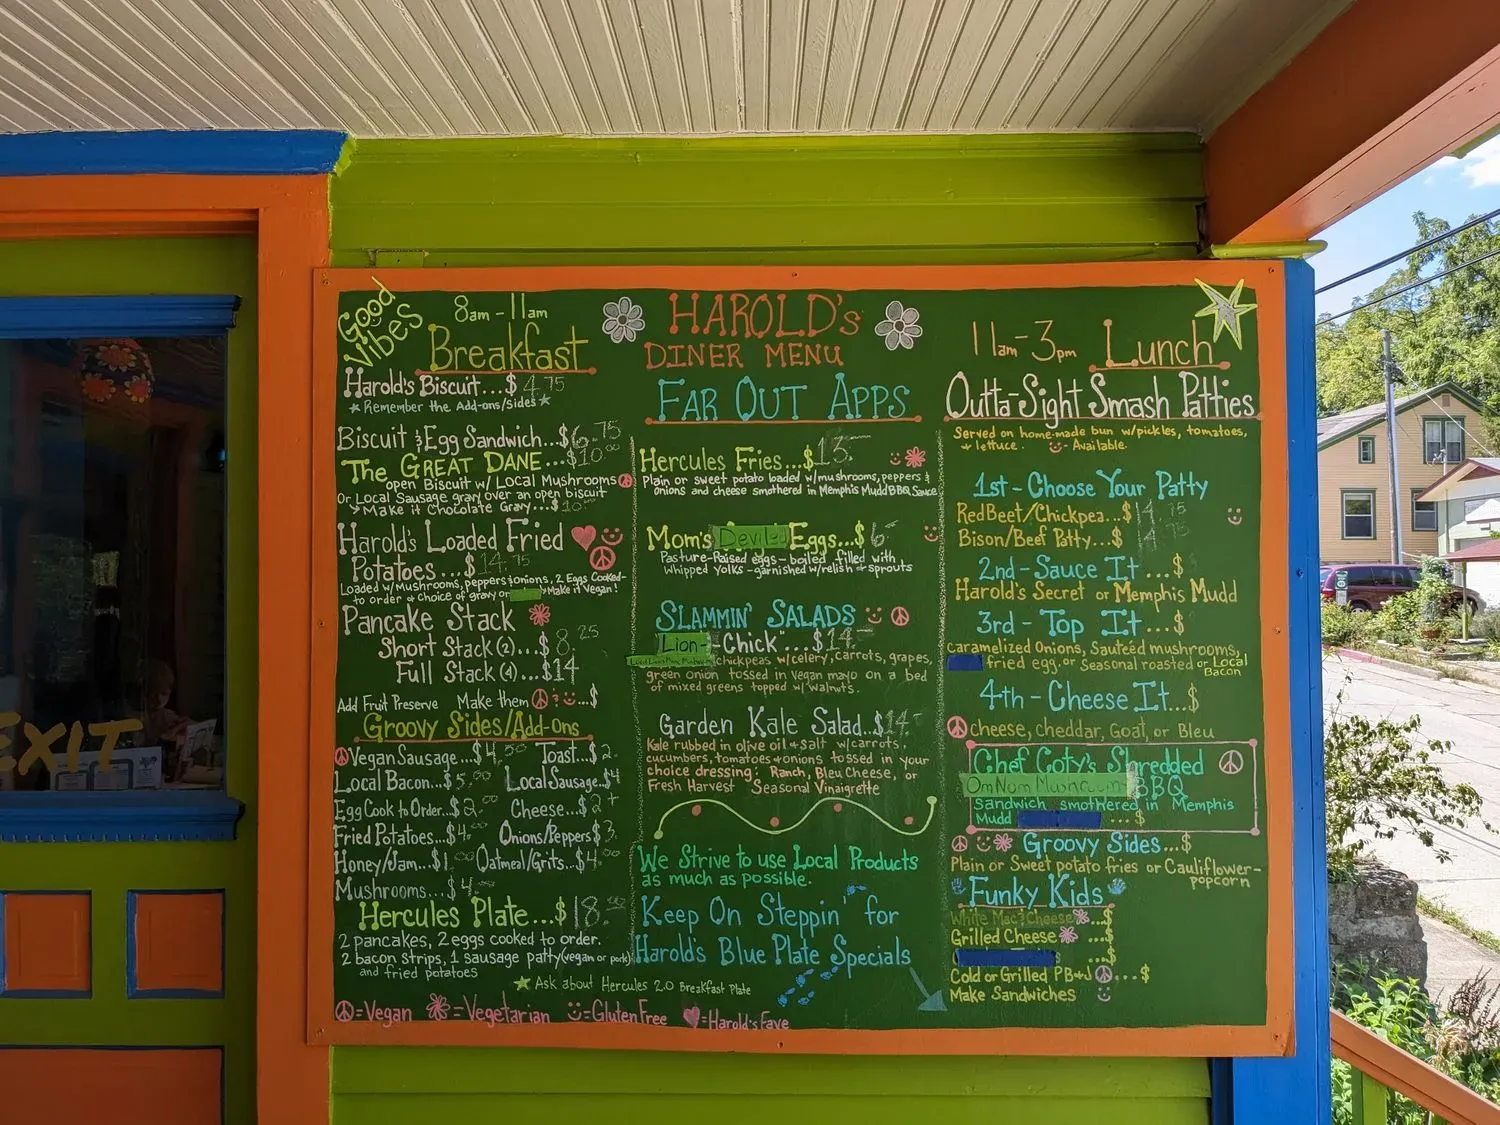 EXIT
Good Vibes
8am - 11am
Breakfast
Harold's Biscuit...$4.75
★Remember the Add-ons/Sides★
Biscuit & Egg Sandwich...$6.75
The GREAT DANE...$10.00
open Biscuit w/ Local Mushrooms
or Local Sausage gravy over an open biscuit
> Make it Chocolate Gravy...$10
Harold's Loaded Fried
Potatoes...$14.75
Loaded w/Mushrooms, peppers & onions, 2 Eggs Cooked-
to order & choice of gravy or Make it Vegan!
Pancake Stack
Short Stack (2)...$8.25
Full Stack (4)...$14
Add Fruit Preserve Make them ...$
Groovy Sides/Add-ons
Vegan Sausage...$4.50 Toast...$2
Local Bacon...$5.00 Local Sausage...$4
Egg Cook to Order...$2.00 Cheese...$2+
Fried Potatoes...$4.00 Onions/Peppers$3
Honey/Jam...$1.00 Oatmeal/Grits...$4.00
Mushrooms...$4.00
Hercules Plate...$18.00
2 pancakes, 2 eggs cooked to order.
2 bacon strips, 1 sausage patty (vegan or pork)
and fried potatoes
★ Ask about Hercules 2.0 Breakfast Plate
=Vegan =Vegetarian =Gluten Free =Harold's Fave
HAROLD's
DINER MENU
FAR OUT APPS
Hercules Fries...$13.
Plain or sweet potato loaded w/mushrooms, peppers &
onions and cheese smothered in Memphis Mudd BBQ Sauce
Mom's Deviled Eggs...$6
Pasture-Raised eggs - boiled filled with
whipped yolks - garnished w/relish & sprouts
SLAMMIN' SALADS
Lion-"Chick"...$14
chickpeas w/celery, carrots, grapes,
green onion tossed in vegan mayo on a bed
of mixed greens topped w/ walnuts.
Garden Kale Salad...$14
Kale rubbed in olive oil & salt w/carrots,
cucumbers, tomatoes & onions tossed in your
choice dressing: Ranch, Bleu Cheese, or
Fresh Harvest Seasonal Vinaigrette
We Strive to use Local Products
as much as possible.
Keep On Steppin' for
Harold's Blue Plate Specials
11am-3pm Lunch
Outta-Sight Smash Patties
Served on home-made bun w/pickles, tomatoes,
& lettuce. - Available
1st - Choose Your Patty
Red Beet/Chickpea...$14.75
Bison/Beef Patty...$
2nd - Sauce It...$
Harold's Secret or Memphis Mudd
3rd - Top It...$
caramelized Onions, Sautéed mushrooms,
fried egg. or Seasonal roasted or Local
Bacon
4th - Cheese It...$
cheese, cheddar, Goat, or Bleu
Chef Coty's Shredded
OmNom Mushroom BBQ
Sandwich smothered in Memphis
Mudd ...$
Groovy Sides...$
Plain or Sweet potato fries or Cauliflower-
popcorn
Funky Kids
White Mac & Cheese ...$
Grilled Cheese ...$
...$
Cold or Grilled PB&J ...$
Make Sandwiches